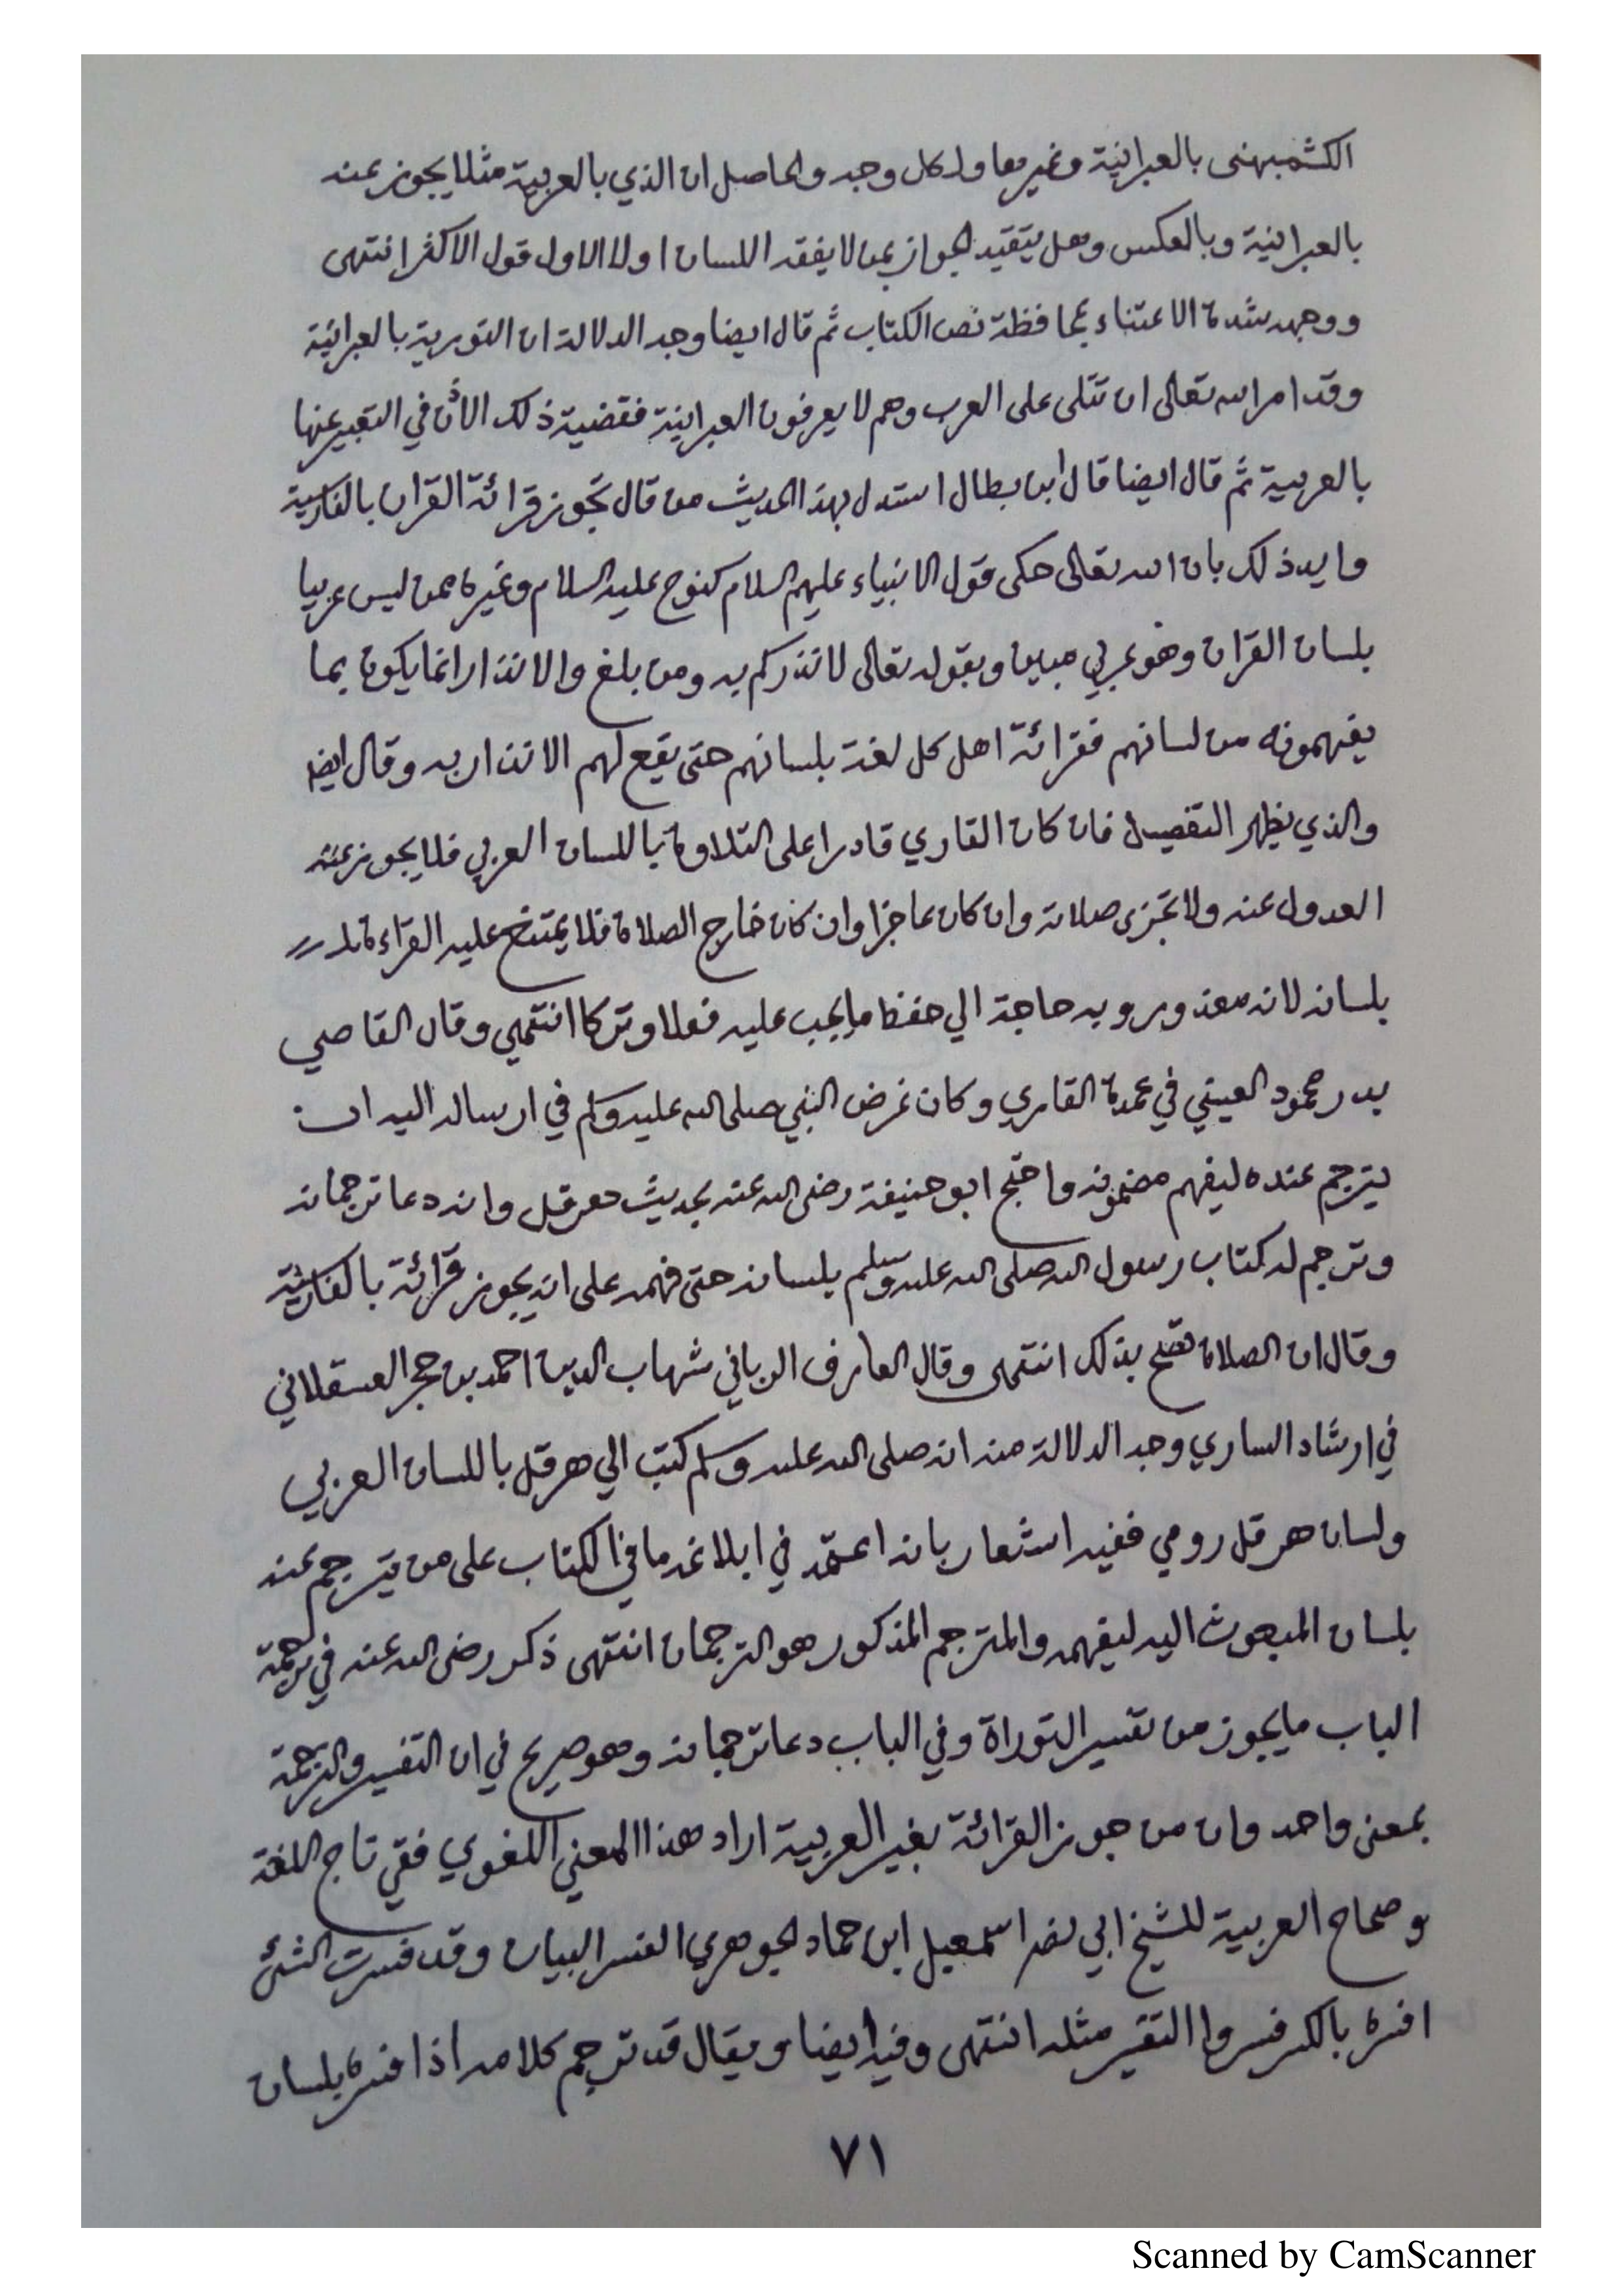 الكشميهنى بالعبرانية وغيرها ولكل وجه والحاصل ان الذي بالعربية مثلا يجوز عنه
بالعبرانية وبالعكس وهل يتقيد الجواز بمن لا يفقه اللسان اولا الاول قول الاكثر انتهى
ووجهه شدة الاعتناء بمحافظة نص الكتاب ثم قال ايضا وجه الدلالة ان التورية بالعبرانية
وقد امر الله تعالى ان تتلى على العرب وهم لا يعرفون العبرانية فقضية ذلك الاذن في التعبير عنها
بالعربية ثم قال ايضا قال ابن بطال استدل بهذا الحديث من قال تجوز قرائة القران بالفارسية
وايد ذلك بان الله تعالى حكى قول الانبياء عليهم السلام كنوح عليه السلام وغيره ممن ليس عربيا
بلسان القران وهو عربي مبين وبقوله تعالى لانذركم به ومن بلغ والانذار انما يكون بما
يفهمونه من لسانهم فقرائة اهل كل لغة بلسانهم حتى يقع لهم الانذار به وقال ايضا
والذي يظهر التفصيل فان كان القاري قادرا على التلاوة باللسان العربي فلا يجوز عنه
العدول عنه ولا تجزى صلاته وان كان عاجزا وان كان خارج الصلاة فلا يمتنع عليه القراءة
بلسانه لانه معذور وبه حاجة الي حفظ ما يجب عليه فعلا وتركا انتهى وقال القاضي
بدر محمود العيني في عمدة القاري وكان غرض النبي صلى الله عليه وسلم في ارساله اليه ان
يترجم عنده ليفهم مضمونه واحتج ابو حنيفة رضى الله عنه بحديث هرقل وانه دعا ترجمانه
وترجم له كتاب رسول الله صلى الله عليه وسلم بلسانه حتى فهمه على انه يجوز قرائة بالفارسية
وقال ان الصلاة تصح بذلك انتهى وقال العارف الرباني شهاب الدين احمد بن حجر العسقلاني
في ارشاد الساري وجه الدلالة منه انه صلى الله عليه وسلم كتب الي هرقل باللسان العربي
ولسان هرقل رومي ففيه اشعار بانه اعتمد في ابلاغه ما في الكتاب على من يترجم عنه
بلسان المبعوث اليه ليفهمه والمترجم المذكور هو الترجمان انتهى ذكر رضى الله عنه في ترجمة
الباب ما يجوز من تفسير التوراة وفي الباب دعا ترجمانه وهو صريح في ان التفسير والترجمة
بمعنى واحد وان من جوز القرائة بغير العربية اراد هذا المعني اللغوي ففي تاج اللغة
وصحاح العربية للشيخ ابي نصر اسمعيل ابن حماد الجوهري الفسر البيان وقد فسرت الشئ
افسره بالكسر فسروا التفسير مثله انتهى وفيه ايضا ويقال قد ترجم كلامه اذا فسره بلسان
٧١
Scanned by CamScanner